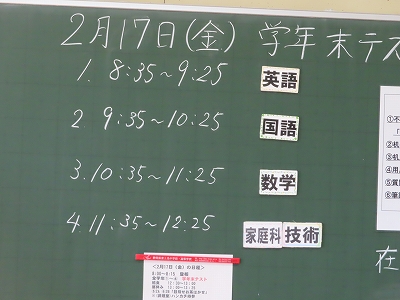 2月17日(金) 学年末テス
1. 8:35～9:25 英語
2. 9:35～10:25 国語
3. 10:35～11:25 数学
4. 11:35～12:25 家庭科 技術
①不
②机
③机
④用
⑤質
⑥筆
在
<2月17日（金）の日程>